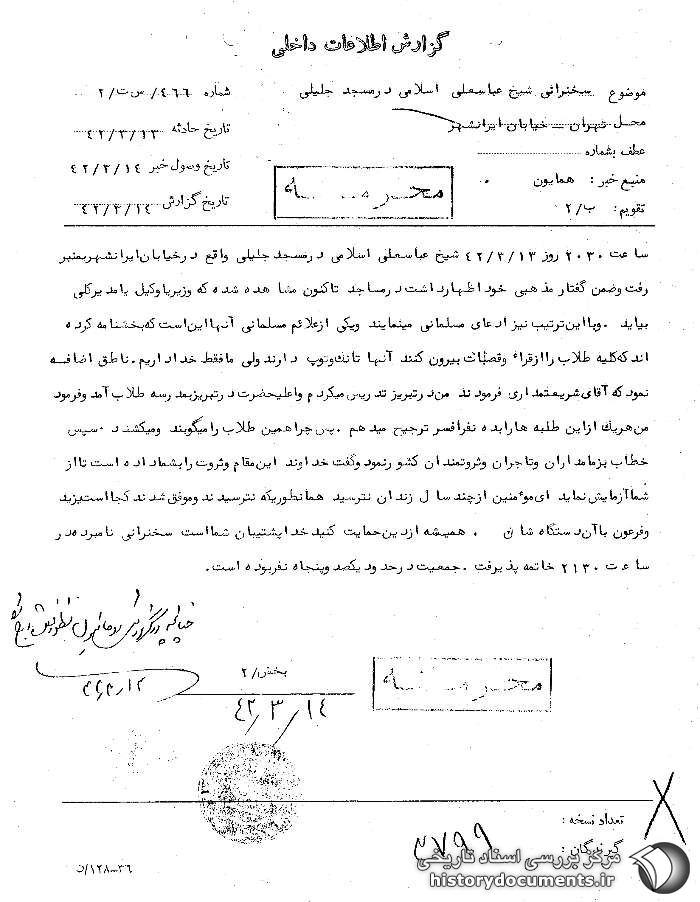 گزارش اطلاعات داخلی
موضوع سخنرانی شیخ عباسعلی اسلامی درمسجد جلیلی
شماره ۴۶۶/ س ت/ ۲
محل تهران – خیابان ایرانشهر
تاریخ حادثه ۴۲/۳/۱۳
عطف بشماره
تاریخ وصول خبر ۴۲/۳/۱۴
منبع خبر : همایون
محرمانه
تاریخ گزارش ۴۲/۳/۱۴
تقویم : ب/۲
ساعت ۲۰۳۰ روز ۴۲/۳/۱۳ شیخ عباسعلی اسلامی درمسجد جلیلی واقع درخیابان ایرانشهربمنبر
رفت وضمن گفتار مذهبی خود اظهارداشت درمساجد تاکنون مشاهده شده که وزیریاوکیل یامدیرکلی
بیاید . وبااین ترتیب نیز ادعای مسلمانی مینمایند ویکی ازعلائم مسلمانی آنهااین است که بخشنامه کرده
اند که کلیه طلاب راازقراء وقصبات بیرون کنند آنها تانک وتوپ دارند ولی مافقط خداداریم . ناطق اضافه
نمود که آقای شریعتمداری فرمودند من درتبریز تدریس میکردم واعلیحضرت درتبریزبمدرسه طلاب آمد وفرمود
من هریک ازاین طلبه هارابده نفرافسر ترجیح میدهم . پس چراهمین طلاب رامیگوبند ومیکشند . سپس
خطاب بزمامداران وتاجران وثروتمندان کشور نمود وگفت خداوند این مقام وثروت رابشماداده است تااز
شماآزمایش نماید ای موءمنین ازچند سال زندان نترسید همانطوریکه نترسیدند وموفق شدند کجااست یزید
وفرعون باآن دستگاه شان . همیشه ازدین حمایت کنید خداپشتیبان شمااست سخنرانی نامبرده در
ساعت ۲۱۳۰ خاتمه پذیرفت . جمعیت درحدود یکصد وپنجاه نفربوده است .
بخش/۲
محرمانه
۴۲/۳/۱۴
تعداد نسخه :
گیرندگان :
۳۷۹۹
۳۶-۱۲۸/ن
مرکز بررسی اسناد تاریخی
historydocuments.ir